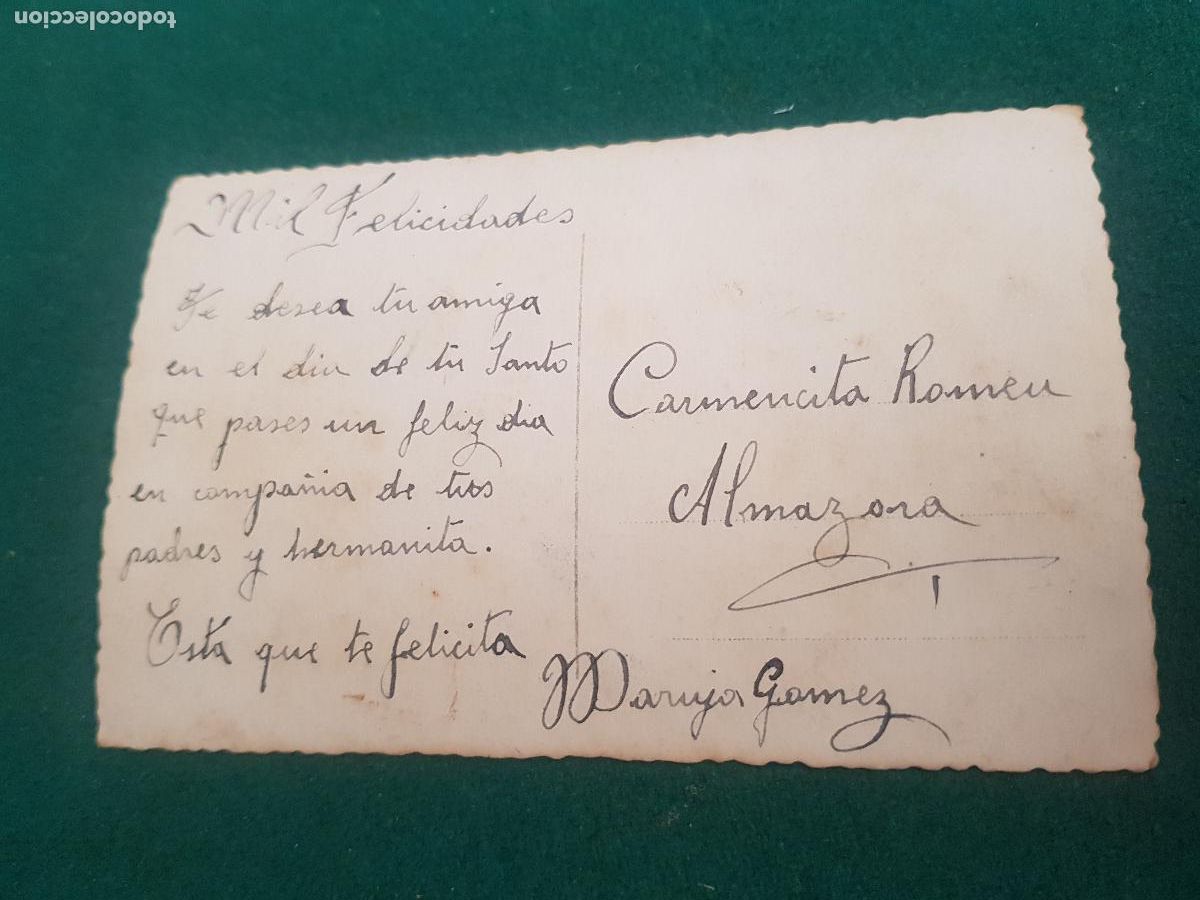 todocoleccion
Mil Felicidades
Te desea tu amiga
en el dia de tu Santo
que pases un feliz dia
en compañia de tus
padres y hermanita.
Esta que te felicita
Maruja Gomez
Carmencita Romeu
Almazora